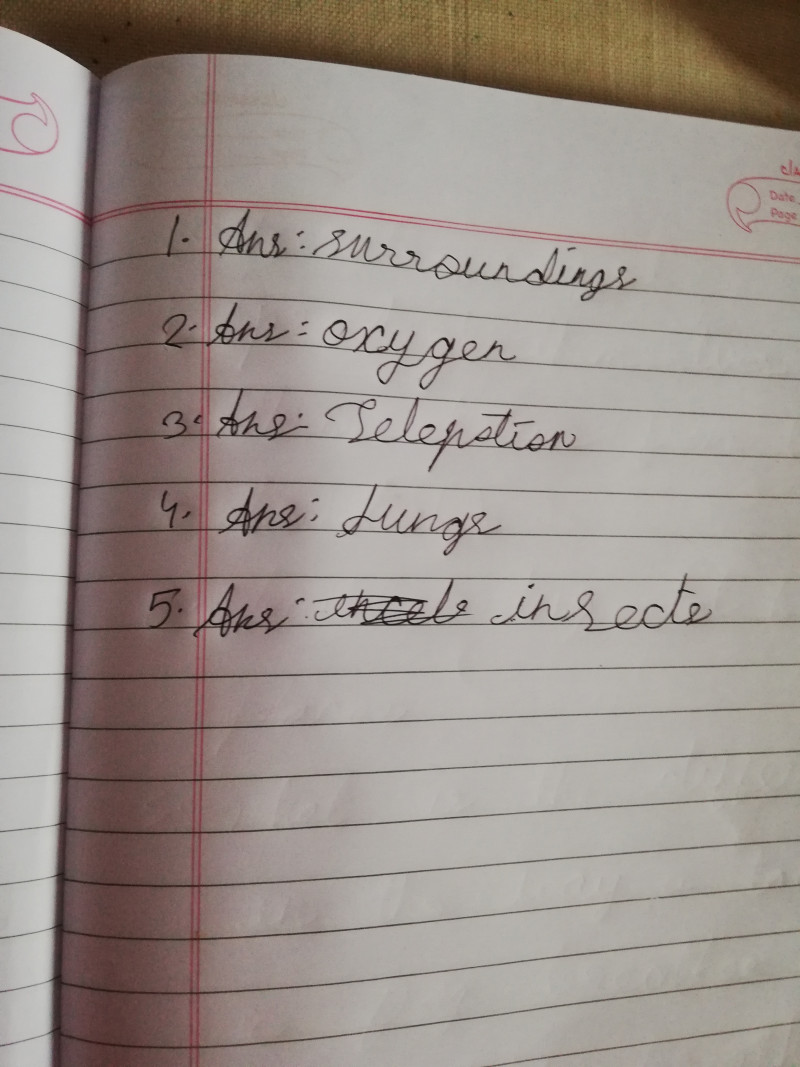 cla
Date
Page
1. Ans: surroundings
2. Ans: oxygen
3. Ans: Telepation
4. Ans: Lungs
5. Ans: insects